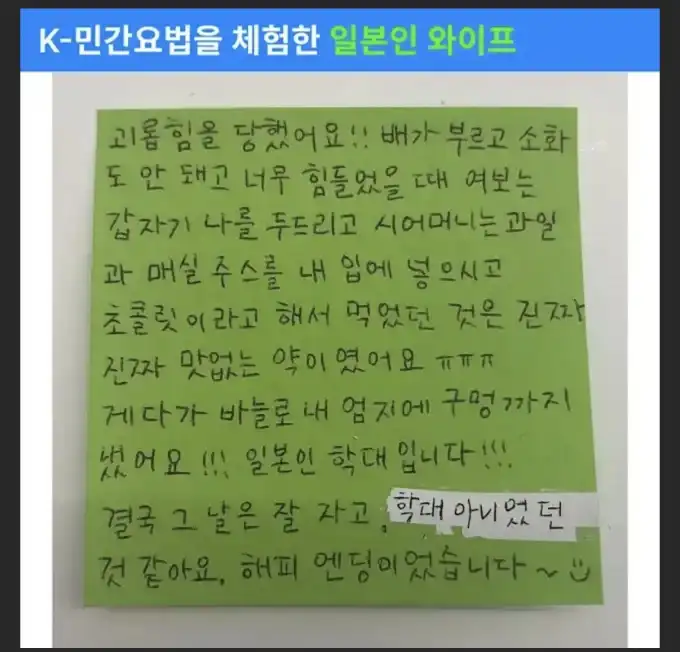 K-민간요법을 체험한 일본인 와이프
괴롭힘을 당했어요!! 배가 부르고 소화
도 안 돼고 너무 힘들었을 때 여보는
갑자기 나를 두드리고 시어머니는 과일
과 매실 주스를 내 입에 넣으시고
초콜릿이라고 해서 먹었던 것은 진짜
진짜 맛없는 약이였어요 ㅠㅠㅠ
게다가 바늘로 내 엄지에 구멍까지
냈어요!!! 일본인 학대입니다!!!
결국 그 날은 잘 자고, 학대 아니었던
것 같아요. 해피 엔딩이었습니다~